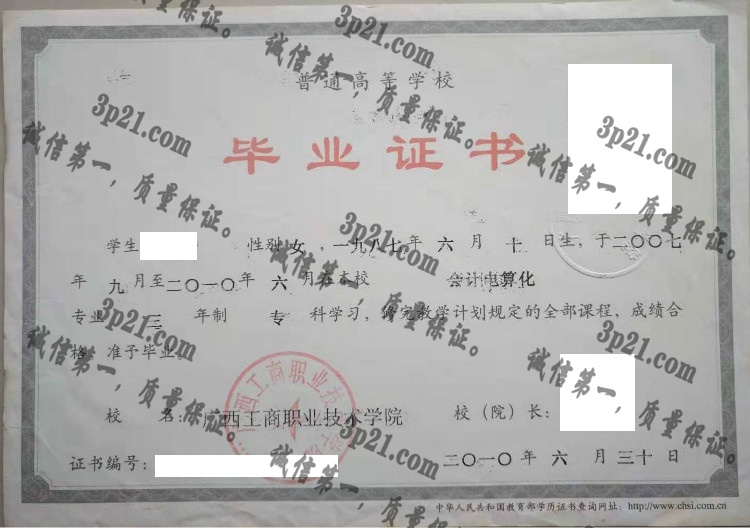 普通高等学校
毕业证书
学生 性别 女 ，一九八七年 六 月 十 日生，于二〇〇七
年 九 月至二〇一〇年 六 月在本校 会计电算化
专业 三 年制 专 科学习，修完教学计划规定的全部课程，成绩合
格，准予毕业。
校 名：广西工商职业技术学院 校（院）长：
证书编号： 二〇一〇年 六 月 三十 日
中华人民共和国教育部学历证书查询网址：http://www.chsi.com.cn
3p21.com
诚信第一，质量保证。
3p21.com
诚信第一，质量保证。
3p21.com
诚信第一，质量保证。
3p21.com
诚信第一，质量保证。
3p21.com
诚信第一，质量保证。
3p21.com
诚信第一，质量保证。
3p21.com
诚信第一，质量保证。